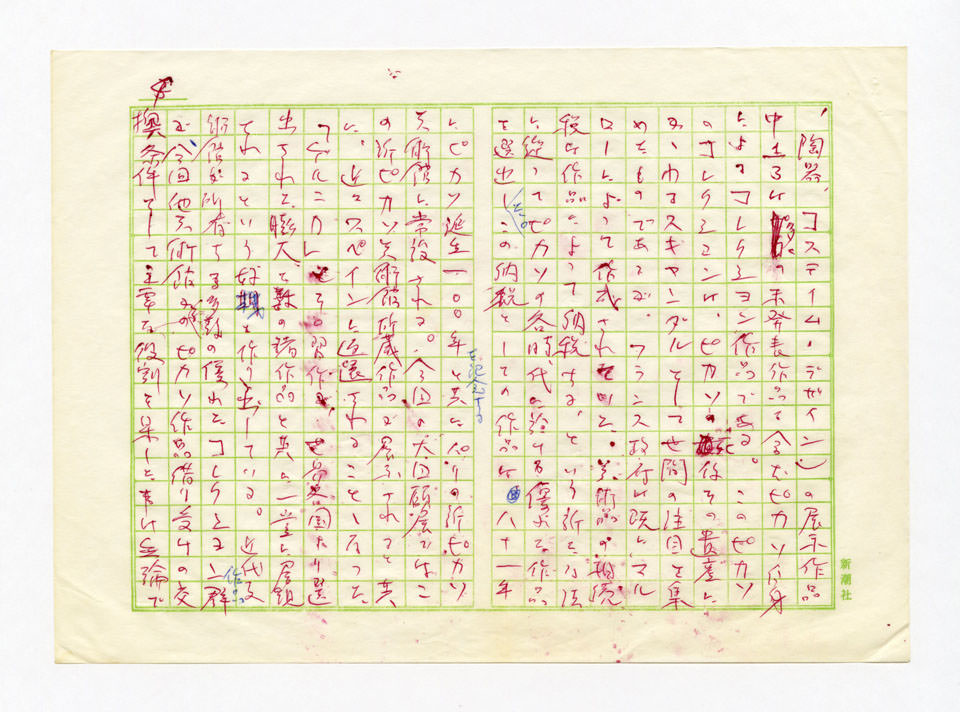 陶器、コステイム・デザイン）の展示作品
中主るは多くの未発表作品を含むピカソ自身
によるコレクション作品である。このピカソ
のコレクションは、ピカソの死後その遺産に
まつわるスキャンダルとして世間の注目を集
めたものであるが、フランス政府は既にマル
ローによって作成されていた。美術品の相続
税は作品によって納税する、という新たな法
に従ってピカソの各時代の於ける優れた作品
を選出した。この納税としての作品は八十一年
にピカソ誕生一〇〇年を記念すると共にパリの新ピカソ
美術館に常設される。今回の大回顧展ではこ
の新ピカソ美術館所蔵作品が展示されると共
に、近々スペインに返還されることになった
「ゲルニカ」とその習作が世界各国より選
出された膨大な数の諸作品と共に一堂に展観
されるという好機を作り出している。近代美
術館が所有する多数の優れたコレクション作品群
が今回他美術館よりのピカソ作品借り受けの交
換条件として主要な役割を果したことは無論で
新潮社